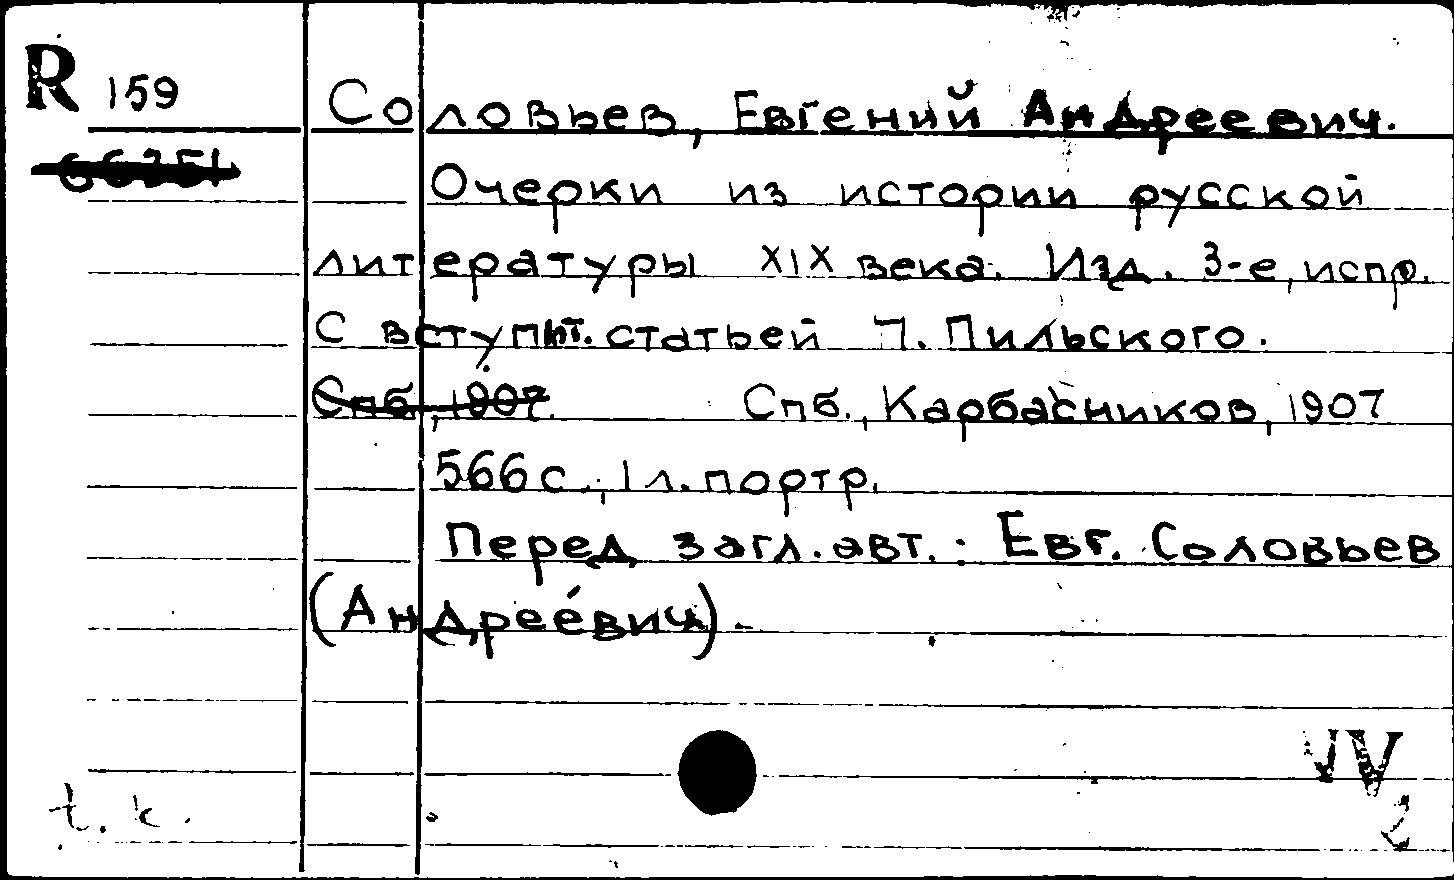 R 159
Соловьев, Евгений Андреевич.
66351
Очерки из истории русской
литературы XIX века. Изд. 3-е, испр.
С вступит. статьей П. Пильского.
Спб, 1907. Спб., Карбасников, 1907
566 с., 1 л. портр.
Перед загл. авт.: Евг. Соловьев
(Андрее́вич).
t. k.
2